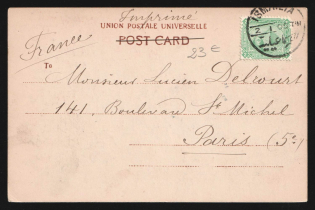 Imprimé
UNION POSTALE UNIVERSELLE
POST CARD
France
23 €
To
Monsieur Lucien Delcourt
141, Boulevard St Michel
Paris (5e)
ISMAILIA